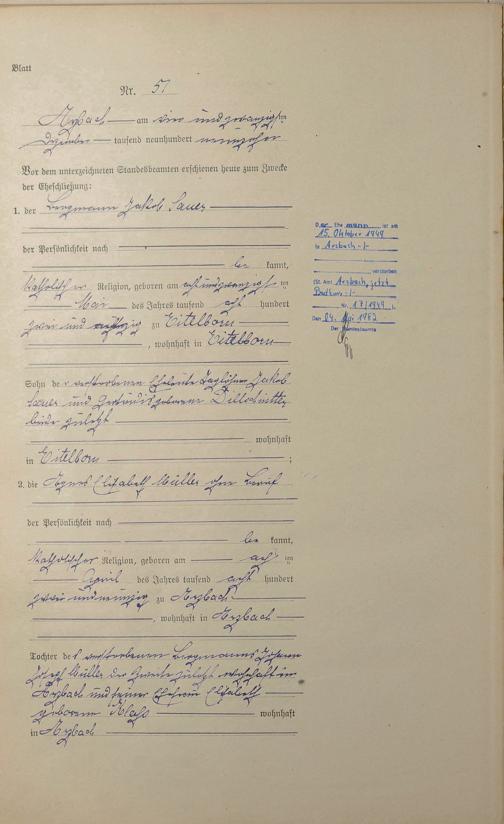 Blatt
Nr. 51
Arzbach am vier und zwanzigsten
Dezember tausend neunhundert neunzehn
Vor dem unterzeichneten Standesbeamten erschienen heute zum Zwecke
der Eheschließung:
1. der Bergmann Jakob Sauer
der Persönlichkeit nach
be kannt,
katholischer Religion, geboren am acht und zwanzigsten
Mai des Jahres tausend acht hundert
zwei und zu Eitelborn
, wohnhaft in Eitelborn
Sohn der verstorbenen Eheleute Taglöhner Jakob
Sauer und Gertrud geborene
beide zuletzt
wohnhaft
in Eitelborn ;
2. die Agnes Elisabeth Müller ohne Beruf
der Persönlichkeit nach
be kannt,
katholischer Religion, geboren am acht ten
April des Jahres tausend acht hundert
zwei und neunzig zu Arzbach
, wohnhaft in Arzbach
Tochter des verstorbenen Bergmannes Johann
Josef Müller der Zweite zuletzt wohnhaft in
Arzbach und seiner Ehefrau Elisabeth
geborene
wohnhaft
in Arzbach
Der Ehe mann ist am
15. Oktober 1949
in Arzbach -/-
verstorben
(St. Amt Arzbach, jetzt
Nr. 17/1949 ).
Den 24. Mai 1982
Der Standesbeamte